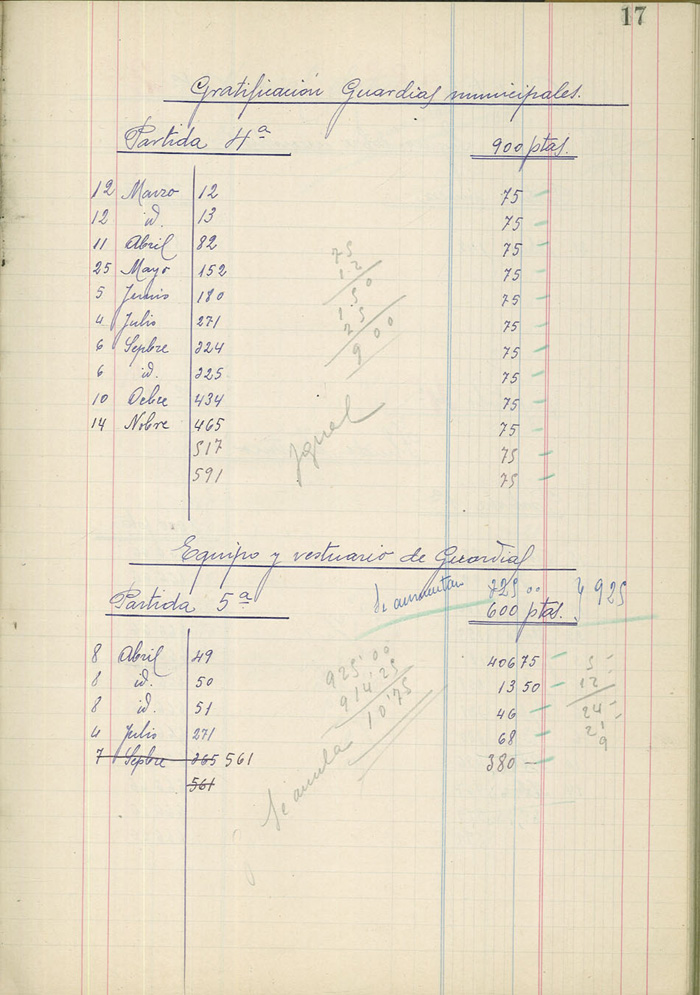 17
Gratificación Guardias municipales.
Partida 4ª 900 ptas.
12 Marzo 12 75 —
12 id. 13 75 —
11 Abril 82 75 —
25 Mayo 152 75 —
5 Junio 180 75 —
4 Julio 271 75 —
6 Sepbre 324 75 —
6 id. 325 75 —
10 Ocbre 434 75 —
14 Nobre 465 75 —
517 75 —
591 75 —
75
12
150
75
900
Igual
Equipo y vestuario de Guardias
Se aumentan 325 00 } 925
Partida 5ª 600 ptas.
8 Abril 49 406 75 —
8 id. 50 13 50 —
8 id. 51 46 —
4 Julio 271 68 —
7 Sepbre 365 561 380 —
561
925'00
914'25
10'75
Se anula
5
12
24
21
9